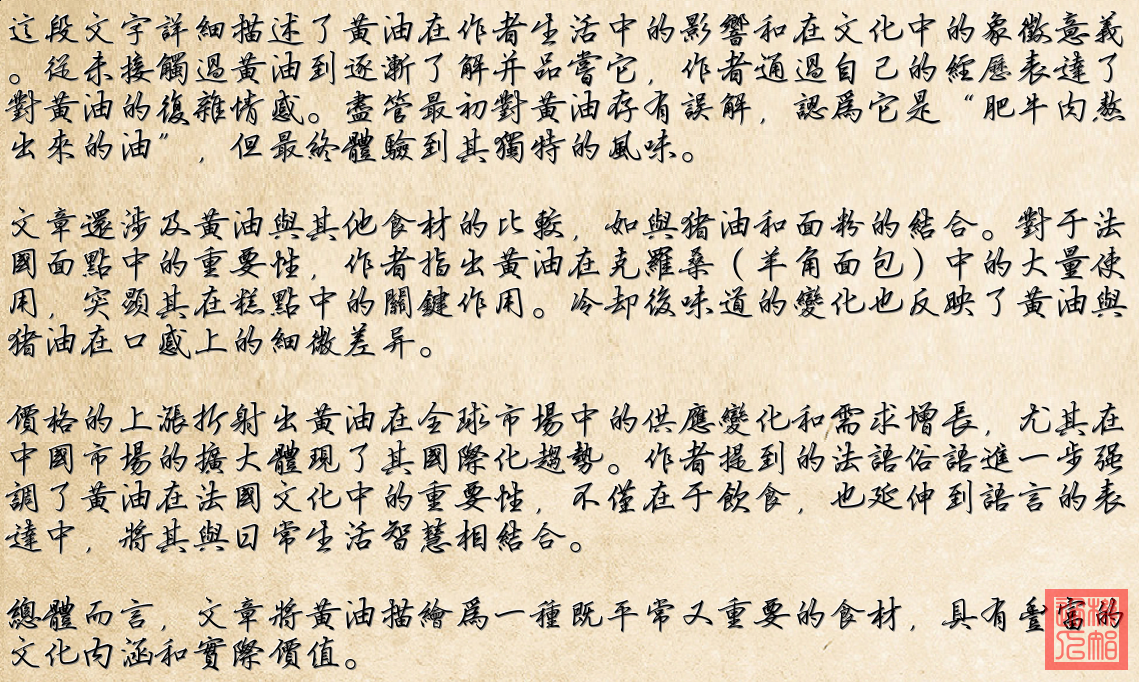 這段文字詳細描述了黃油在作者生活中的影響和在文化中的象徵意義
。從未接觸過黃油到逐漸了解并品嘗它，作者通過自己的經歷表達了
對黃油的復雜情感。盡管最初對黃油存有誤解，認爲它是“肥牛肉熬
出來的油”，但最終體驗到其獨特的風味。
文章還涉及黃油與其他食材的比較，如與猪油和面粉的結合。對于法
國面點中的重要性，作者指出黃油在克羅桑（羊角面包）中的大量使
用，突顯其在糕點中的關鍵作用。冷却後味道的變化也反映了黃油與
猪油在口感上的細微差异。
價格的上漲折射出黃油在全球市場中的供應變化和需求增長，尤其在
中國市場的擴大體現了其國際化趨勢。作者提到的法語俗語進一步强
調了黃油在法國文化中的重要性，不僅在于飲食，也延伸到語言的表
達中，將其與日常生活智慧相結合。
總體而言，文章將黃油描繪爲一種既平常又重要的食材，具有豐富的
文化内涵和實際價值。